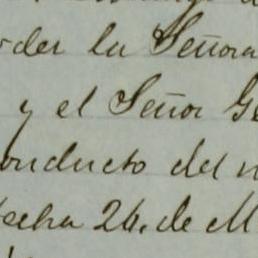 der la Señora
y el Señor Ge
onducto del
fecha 26, de M